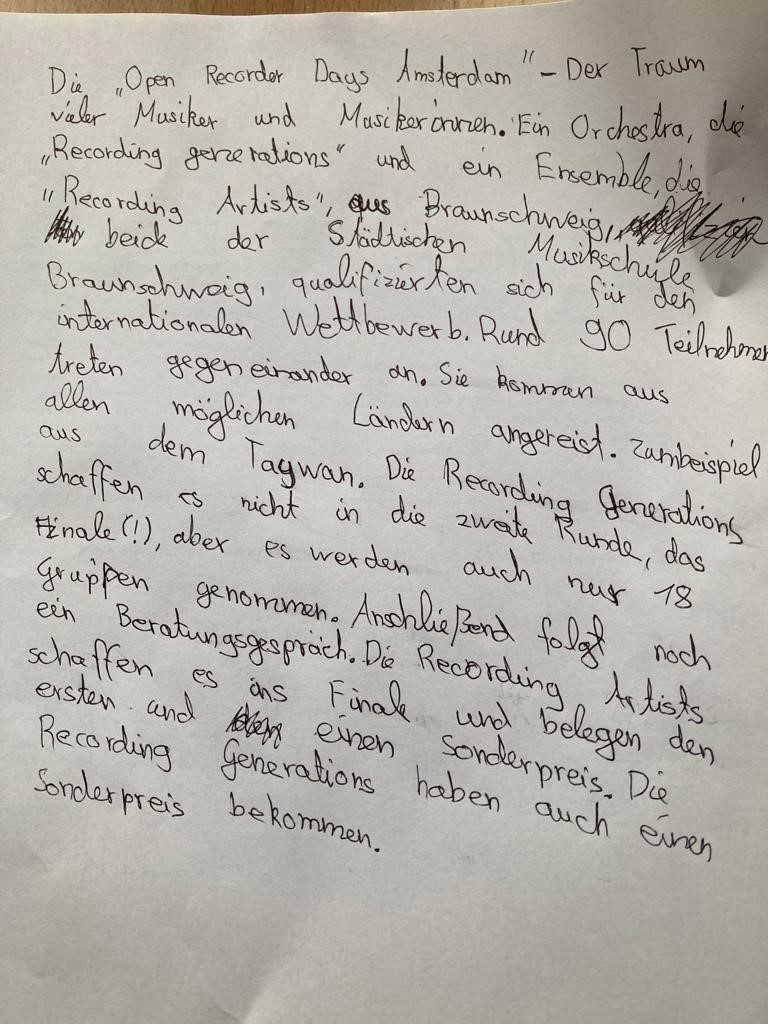 Die „Open Recorder Days Amsterdam" – Der Traum
vieler Musiker und Musikerinnen. Ein Orchestra, die
„Recording generations" und ein Ensemble, die
"Recording Artists", aus Braunschweig,
beide der Städtischen Musikschule
Braunschweig, qualifizierten sich für den
internationalen Wettbewerb. Rund 90 Teilnehmer
treten gegeneinander an. Sie kommen aus
allen möglichen Ländern angereist. Zumbeispiel
aus dem Taywan. Die Recording Generations
schaffen es nicht in die zweite Runde, das
Finale(!), aber es werden auch nur 18
Gruppen genommen. Anschließend folgt noch
ein Beratungsgespräch. Die Recording Artists
schaffen es ins Finale und belegen den
ersten und einen Sonderpreis. Die
Recording Generations haben auch einen
Sonderpreis bekommen.